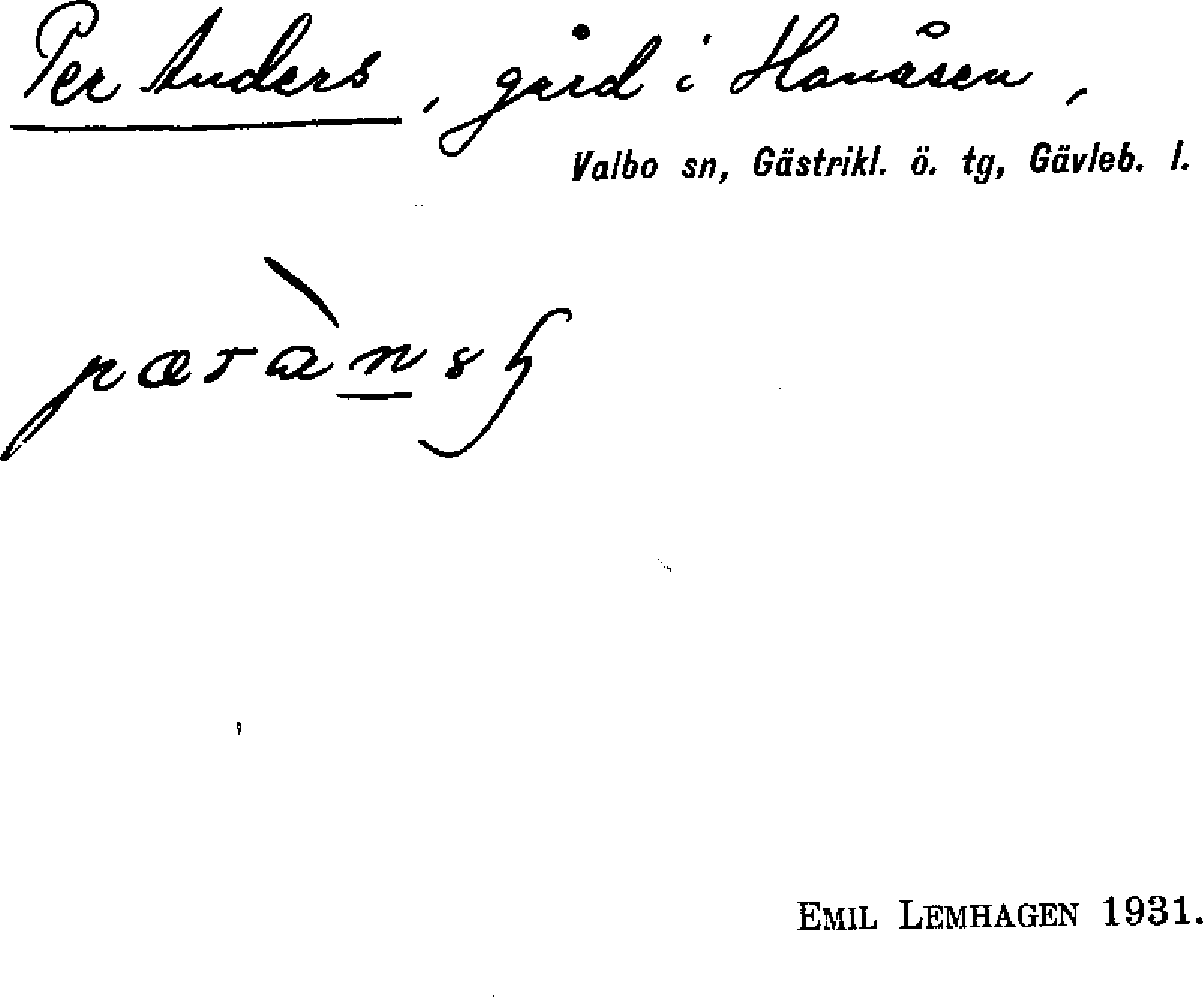 Per Anders, gård i Hanåsen,
Valbo sn, Gästrikl. ö. tg, Gävleb. l.
EMIL LEMHAGEN 1931.